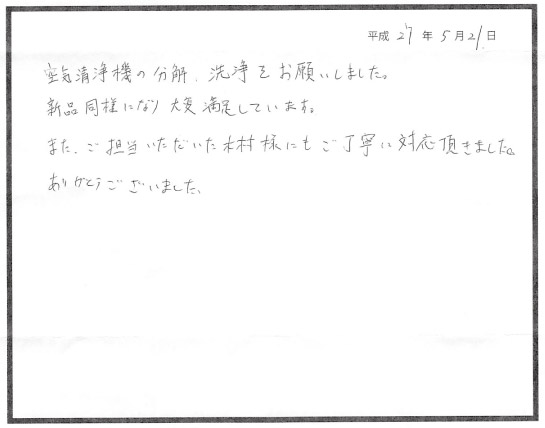 平成 27 年 5 月 21 日
空気清浄機の分解、洗浄をお願いしました。
新品同様になり大変満足しています。
また、ご担当いただいた木村様にもご丁寧に対応頂きました。
ありがとうございました。